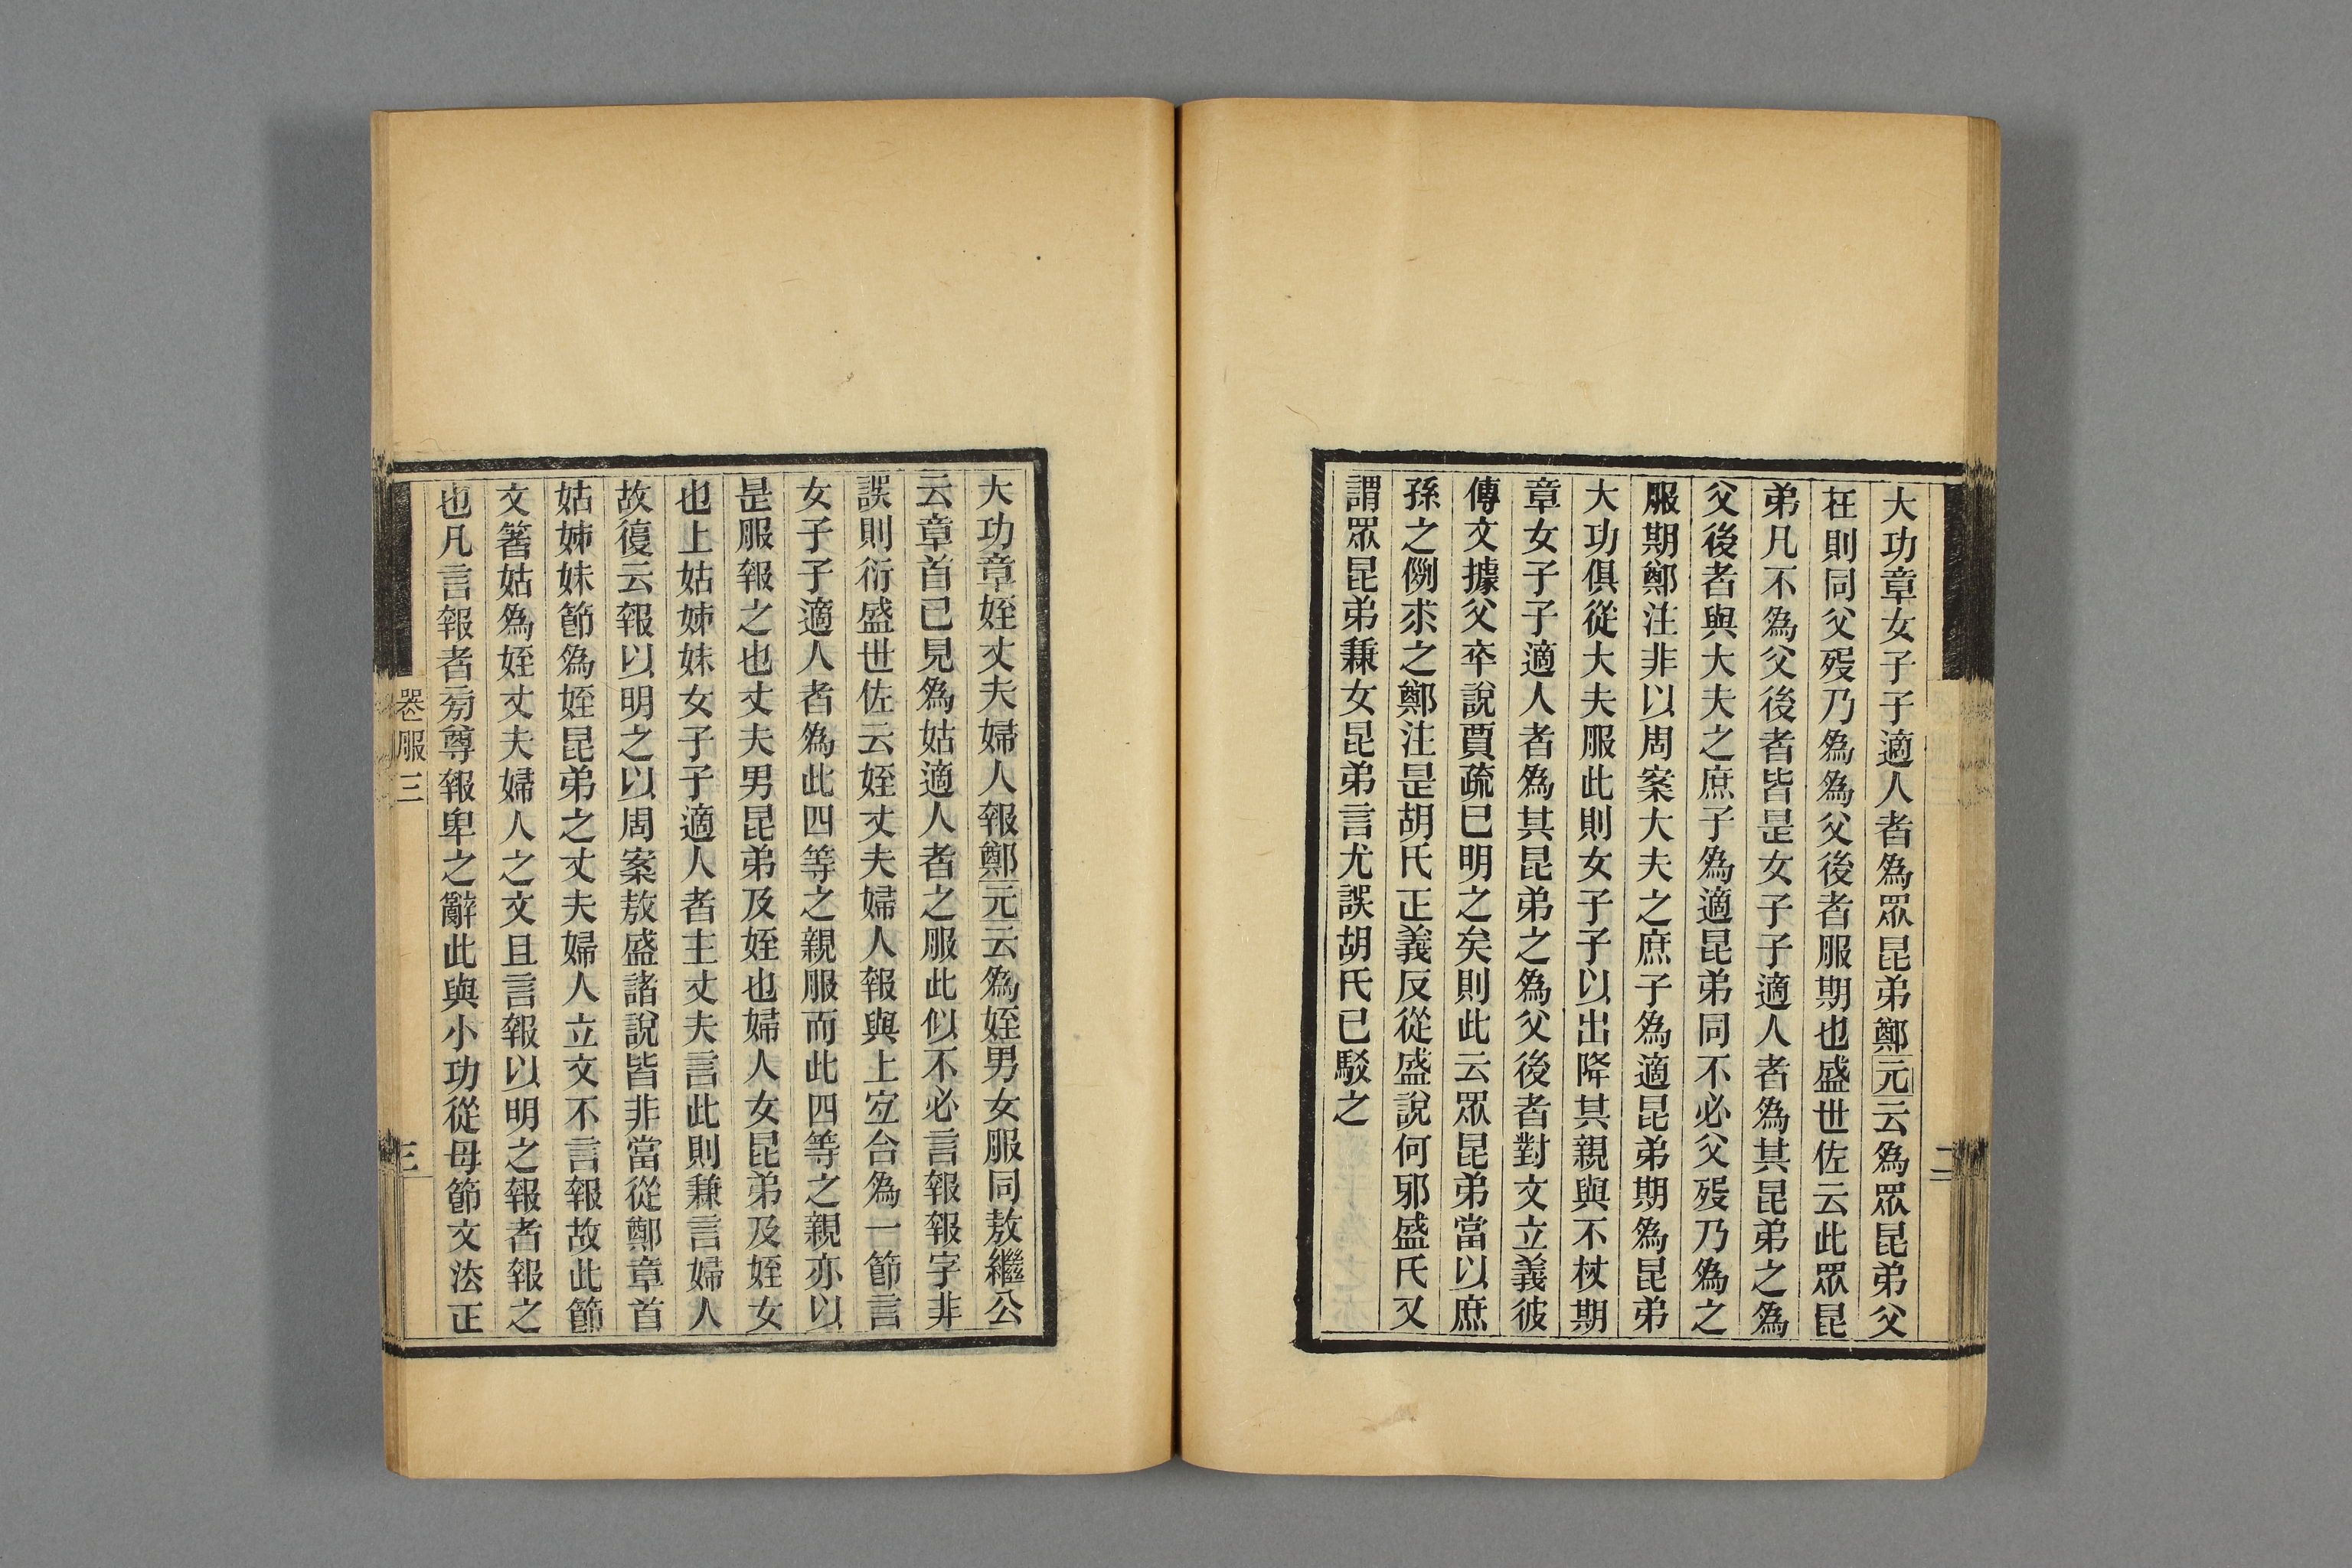 大功章女子子適人者為眾昆弟鄭元云為眾昆弟父
在則同父歿乃為為父後者服期也盛世佐云此眾昆
弟凡不為父後者皆是女子子適人者為其昆弟之為
父後者與大夫之庶子為適昆弟同不必父歿乃為之
服期鄭注非以周案大夫之庶子為適昆弟期為昆弟
大功俱從大夫服此則女子子以出降其親與不杖期
章女子子適人者為其昆弟之為父後者對文立義彼
傳文據父卒說賈疏已明之矣則此云眾昆弟當以庶
孫之例求之鄭注是胡氏正義反從盛說何邪盛氏又
謂眾昆弟兼女昆弟言尤誤胡氏已駁之
二
大功章姪丈夫婦人報鄭元云為姪男女服同敖繼公
云章首已見為姑適人者之服此似不必言報報字非
誤則衍盛世佐云姪丈夫婦人報與上宜合為一節言
女子子適人者為此四等之親服而此四等之親亦以
是服報之也丈夫男昆弟及姪也婦人女昆弟及姪女
也上姑姊妹女子子適人者主丈夫言此則兼言婦人
故復云報以明之以周案敖盛諸說皆非當從鄭章首
姑姊妹節為姪昆弟之丈夫婦人立文不言報故此節
文箸姑為姪丈夫婦人之文且言報以明之報者報之
也凡言報者旁尊報卑之辭此與小功從母節文法正
喪服三
三